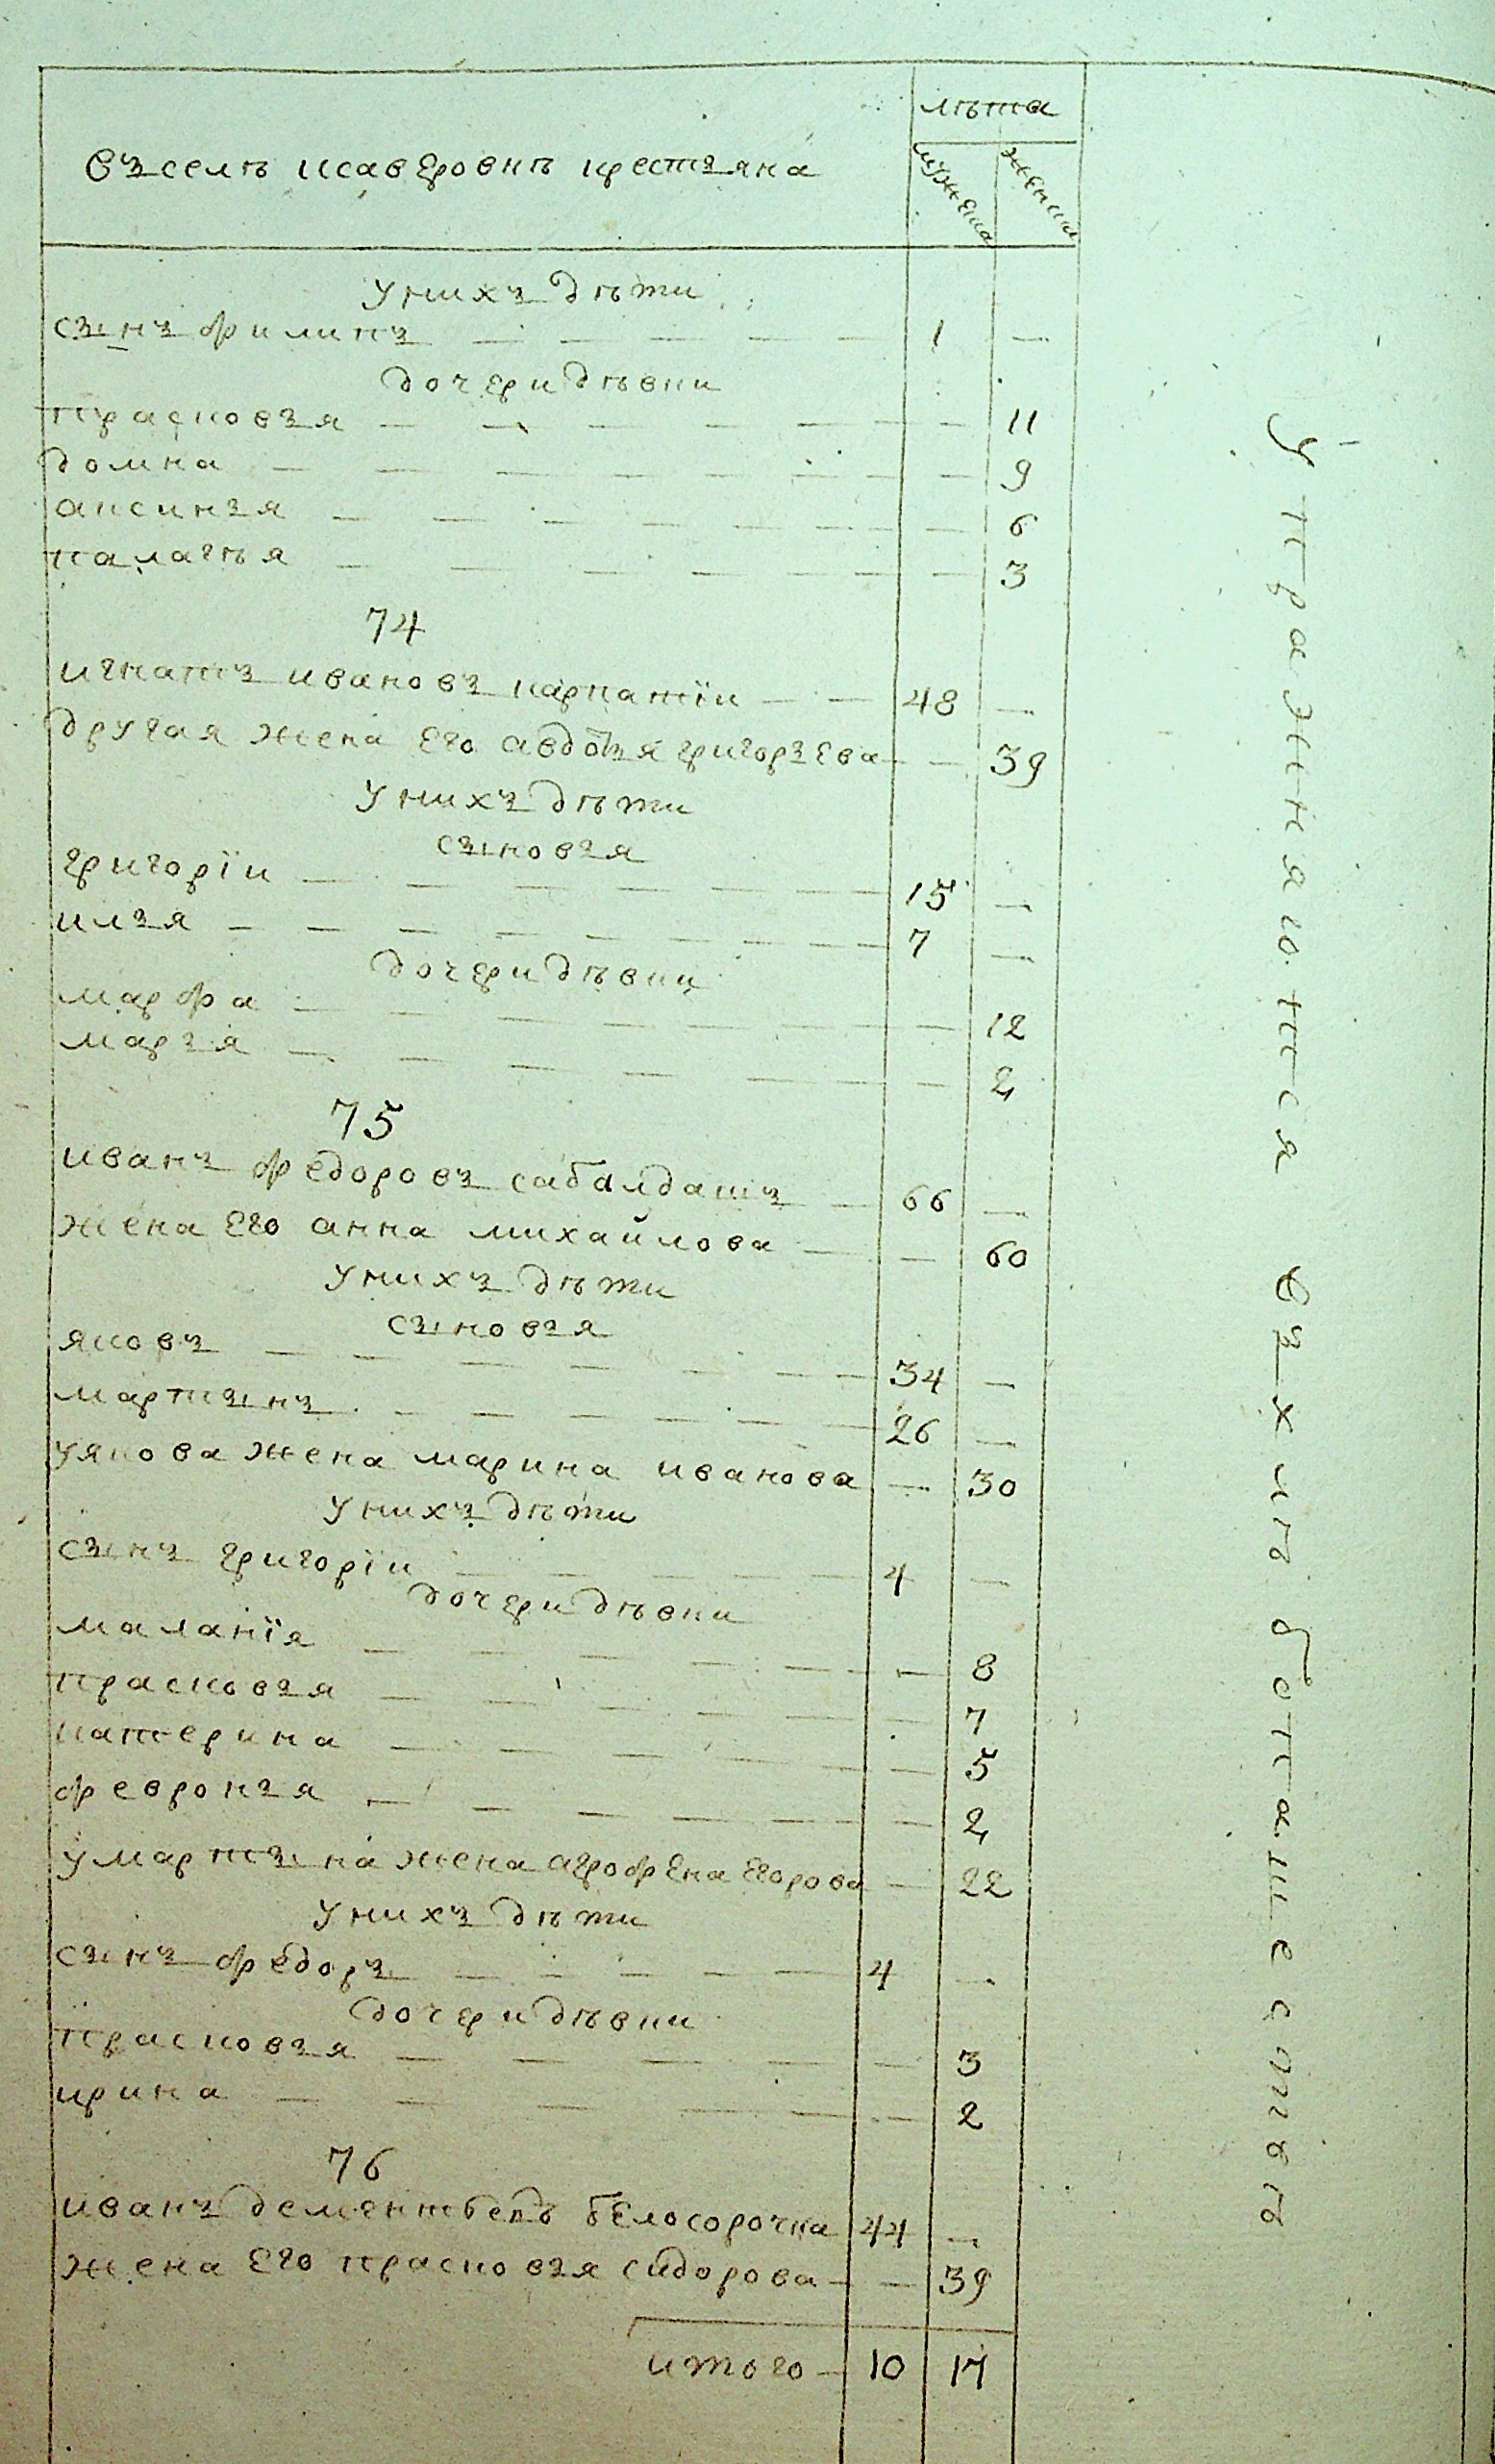 лѣта
въ селѣ исавцровкѣ крестьяна
мужеска
женски
у нихъ дѣти
сынъ филипъ — — — — — 1 —
дочери дѣвки
прасковья — — — — — — 11
домна — — — — — — 9
аксинья — — — — — — 6
палагѣя — — — — — — 3
74
игнатъ ивановъ карпатїи — — 48 —
другая жена его авдотья григорьева — — 39
у нихъ дѣти
сыновья
григорїи — — — — — — 15 —
илья — — — — — — — 7 —
дочери дѣвки
марфа — — — — — — 12
марья — — — — — — 2
75
иванъ федоровъ сабалдашъ — 66 —
жена его анна михайлова — — 60
у нихъ дѣти
сыновья
яковъ — — — — — — 34 —
мартынъ — — — — — 26 —
у якова жена марина иванова — 30
у нихъ дѣти
сынъ григорїи — — — — 4 —
дочери дѣвки
маланїя — — — — — — 8
прасковья — — — — — — 7
катерина — — — — — 5
февронья — — — — — — 2
у мартына жена агрофена егорова — 22
у нихъ дѣти
сынъ федоръ — — — — — 4 —
дочери дѣвки
прасковья — — — — — 3
ирина — — — — — — 2
76
иванъ дементьевъ белосорочка 44 —
жена его прасковья сидорова — — 39
итого — 10 17
упражняются въ хлѣбопашестве